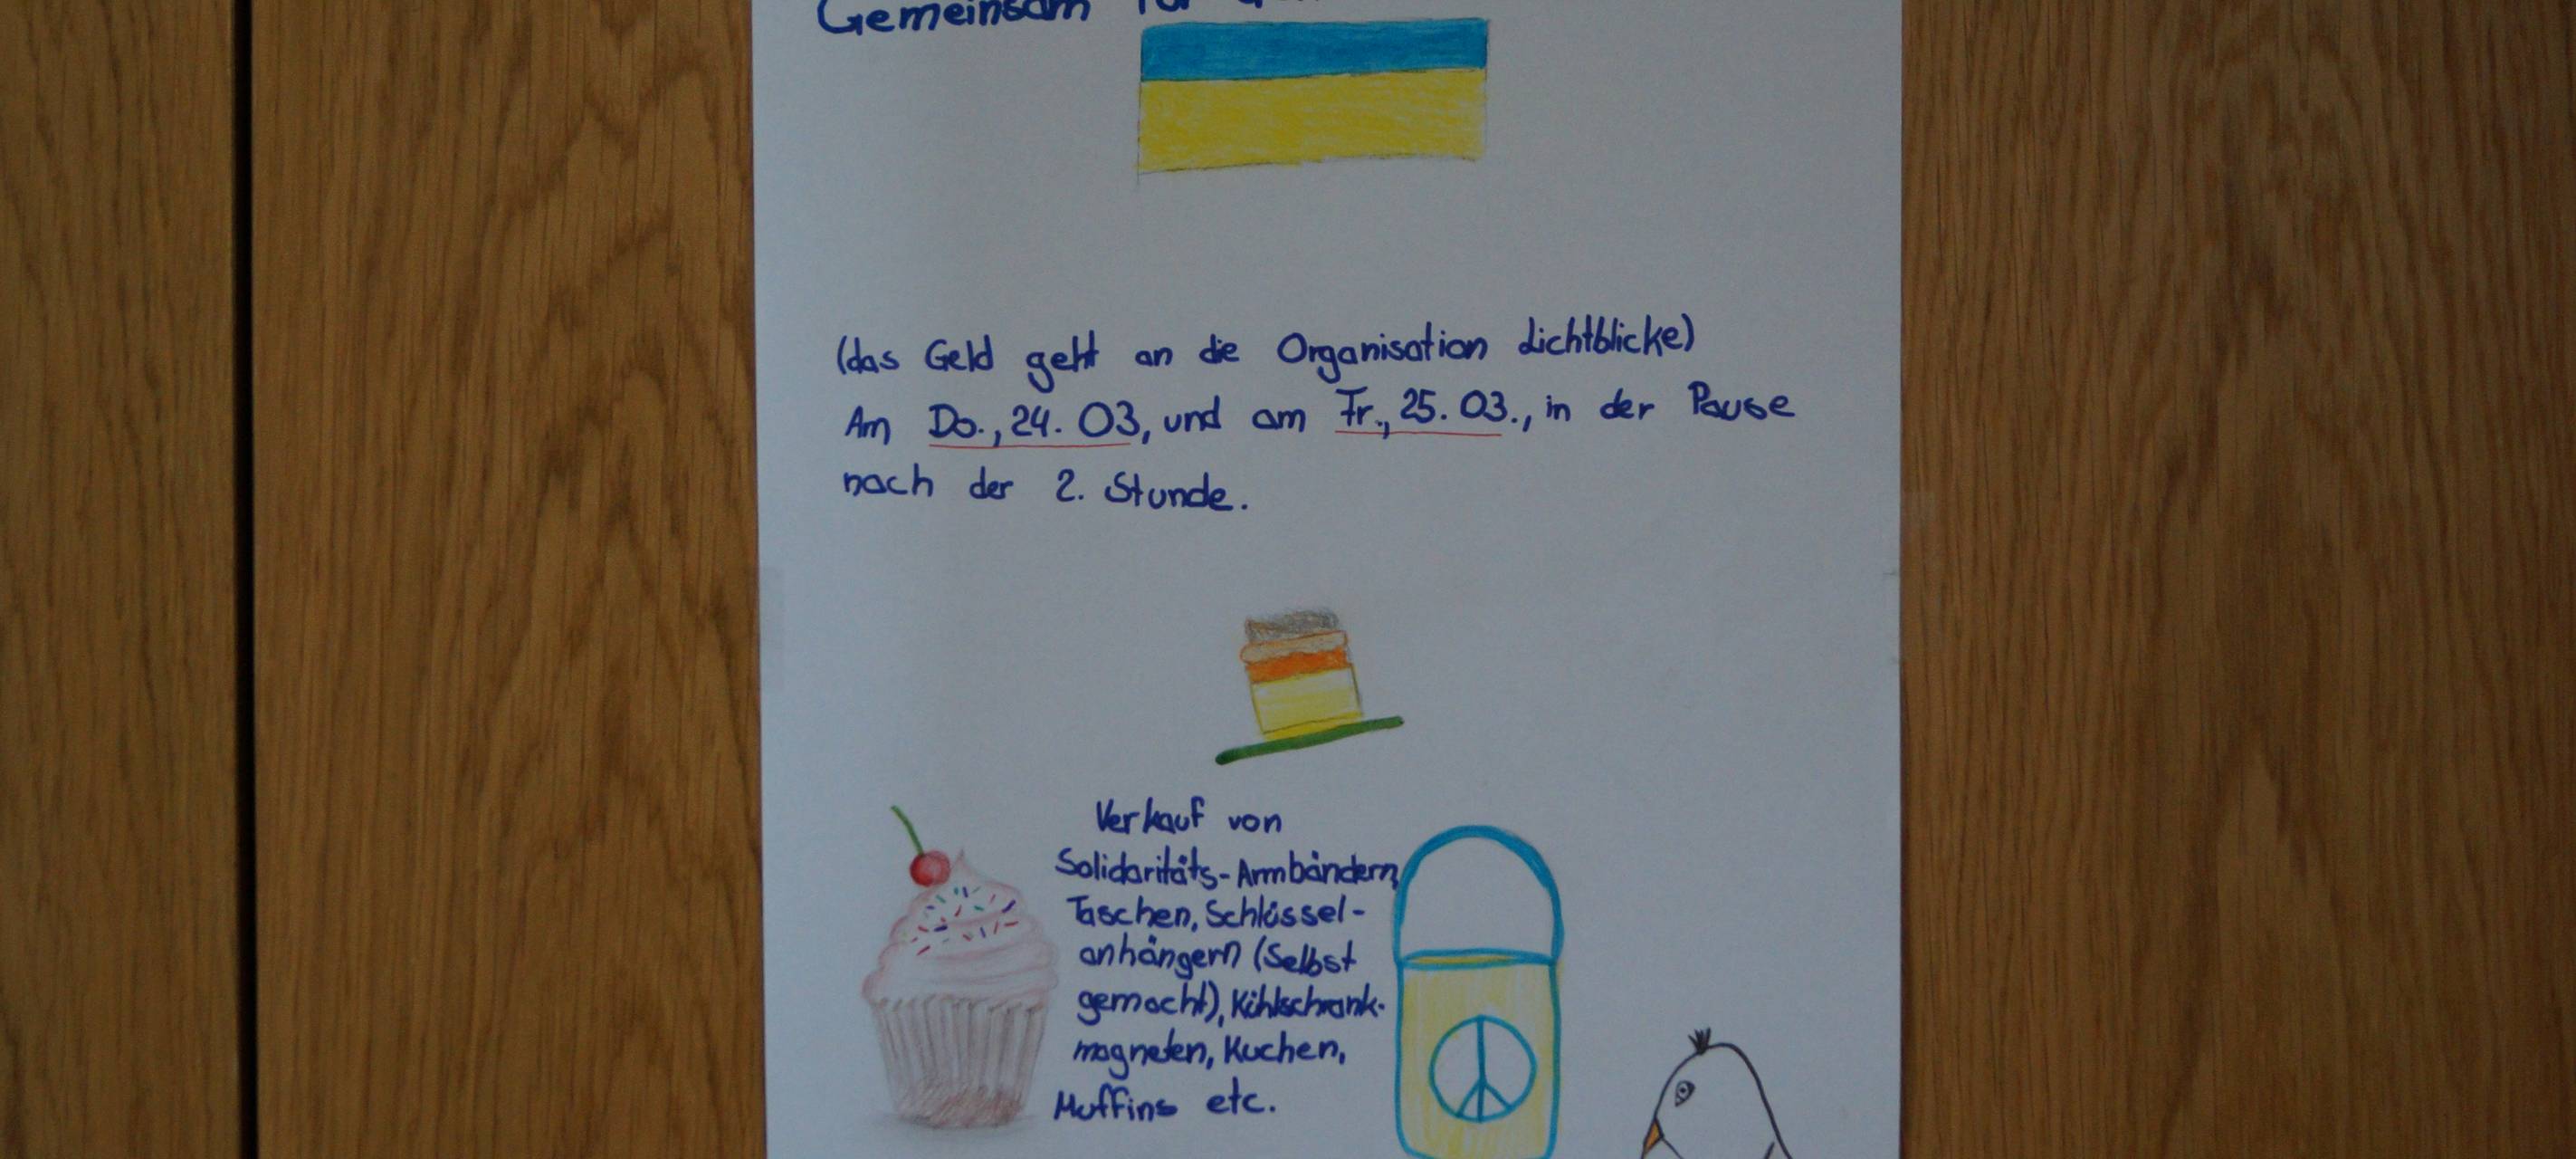 Gemeinsam für
(das Geld geht an die Organisation Lichtblicke)
Am Do., 24. 03, und am Fr., 25. 03., in der Pause
nach der 2. Stunde.
Verkauf von
Solidaritäts-Armbändern,
Taschen, Schlüssel-
anhängern (Selbst
gemacht), Kühlschrank-
magneten, Kuchen,
Muffins etc.